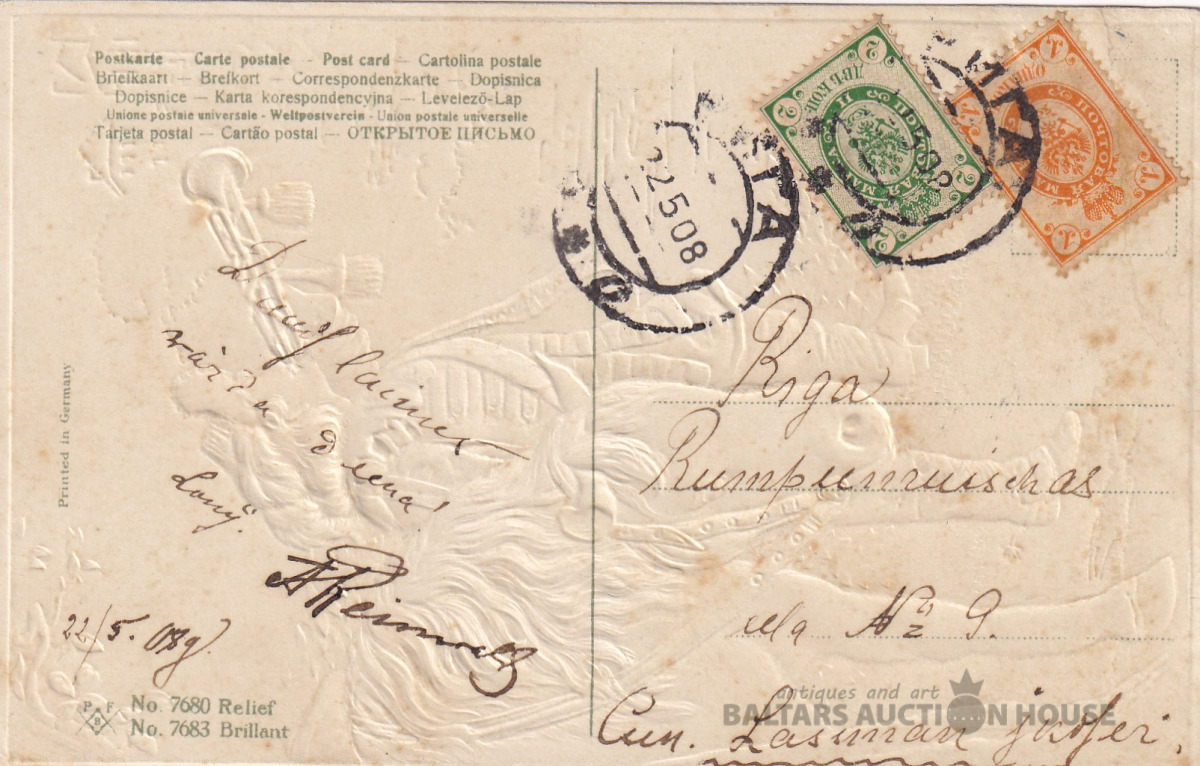 Postkarte — Carte postale — Post card — Cartolina postale
Briefkaart — Brefkort — Correspondenzkarte — Dopisnica
Dopisnice — Karta korespondencyjna — Levelező-Lap
Unione postale universale - Weltpostverein - Union postale universelle
Tarjeta postal — Cartão postal — ОТКРЫТОЕ ПИСЬМО
Printed in Germany
Daudz laimes
vārda
diena!
22/5. 08g.
P F B
No. 7680 Relief
No. 7683 Brillant
РИГА
22 5 08
2 ДВѢ КОП.
1
Riga
Rumpenmuischas
iela № 9.
Cun. Lasman
antiques and art
BALTARS AUCTION HOUSE